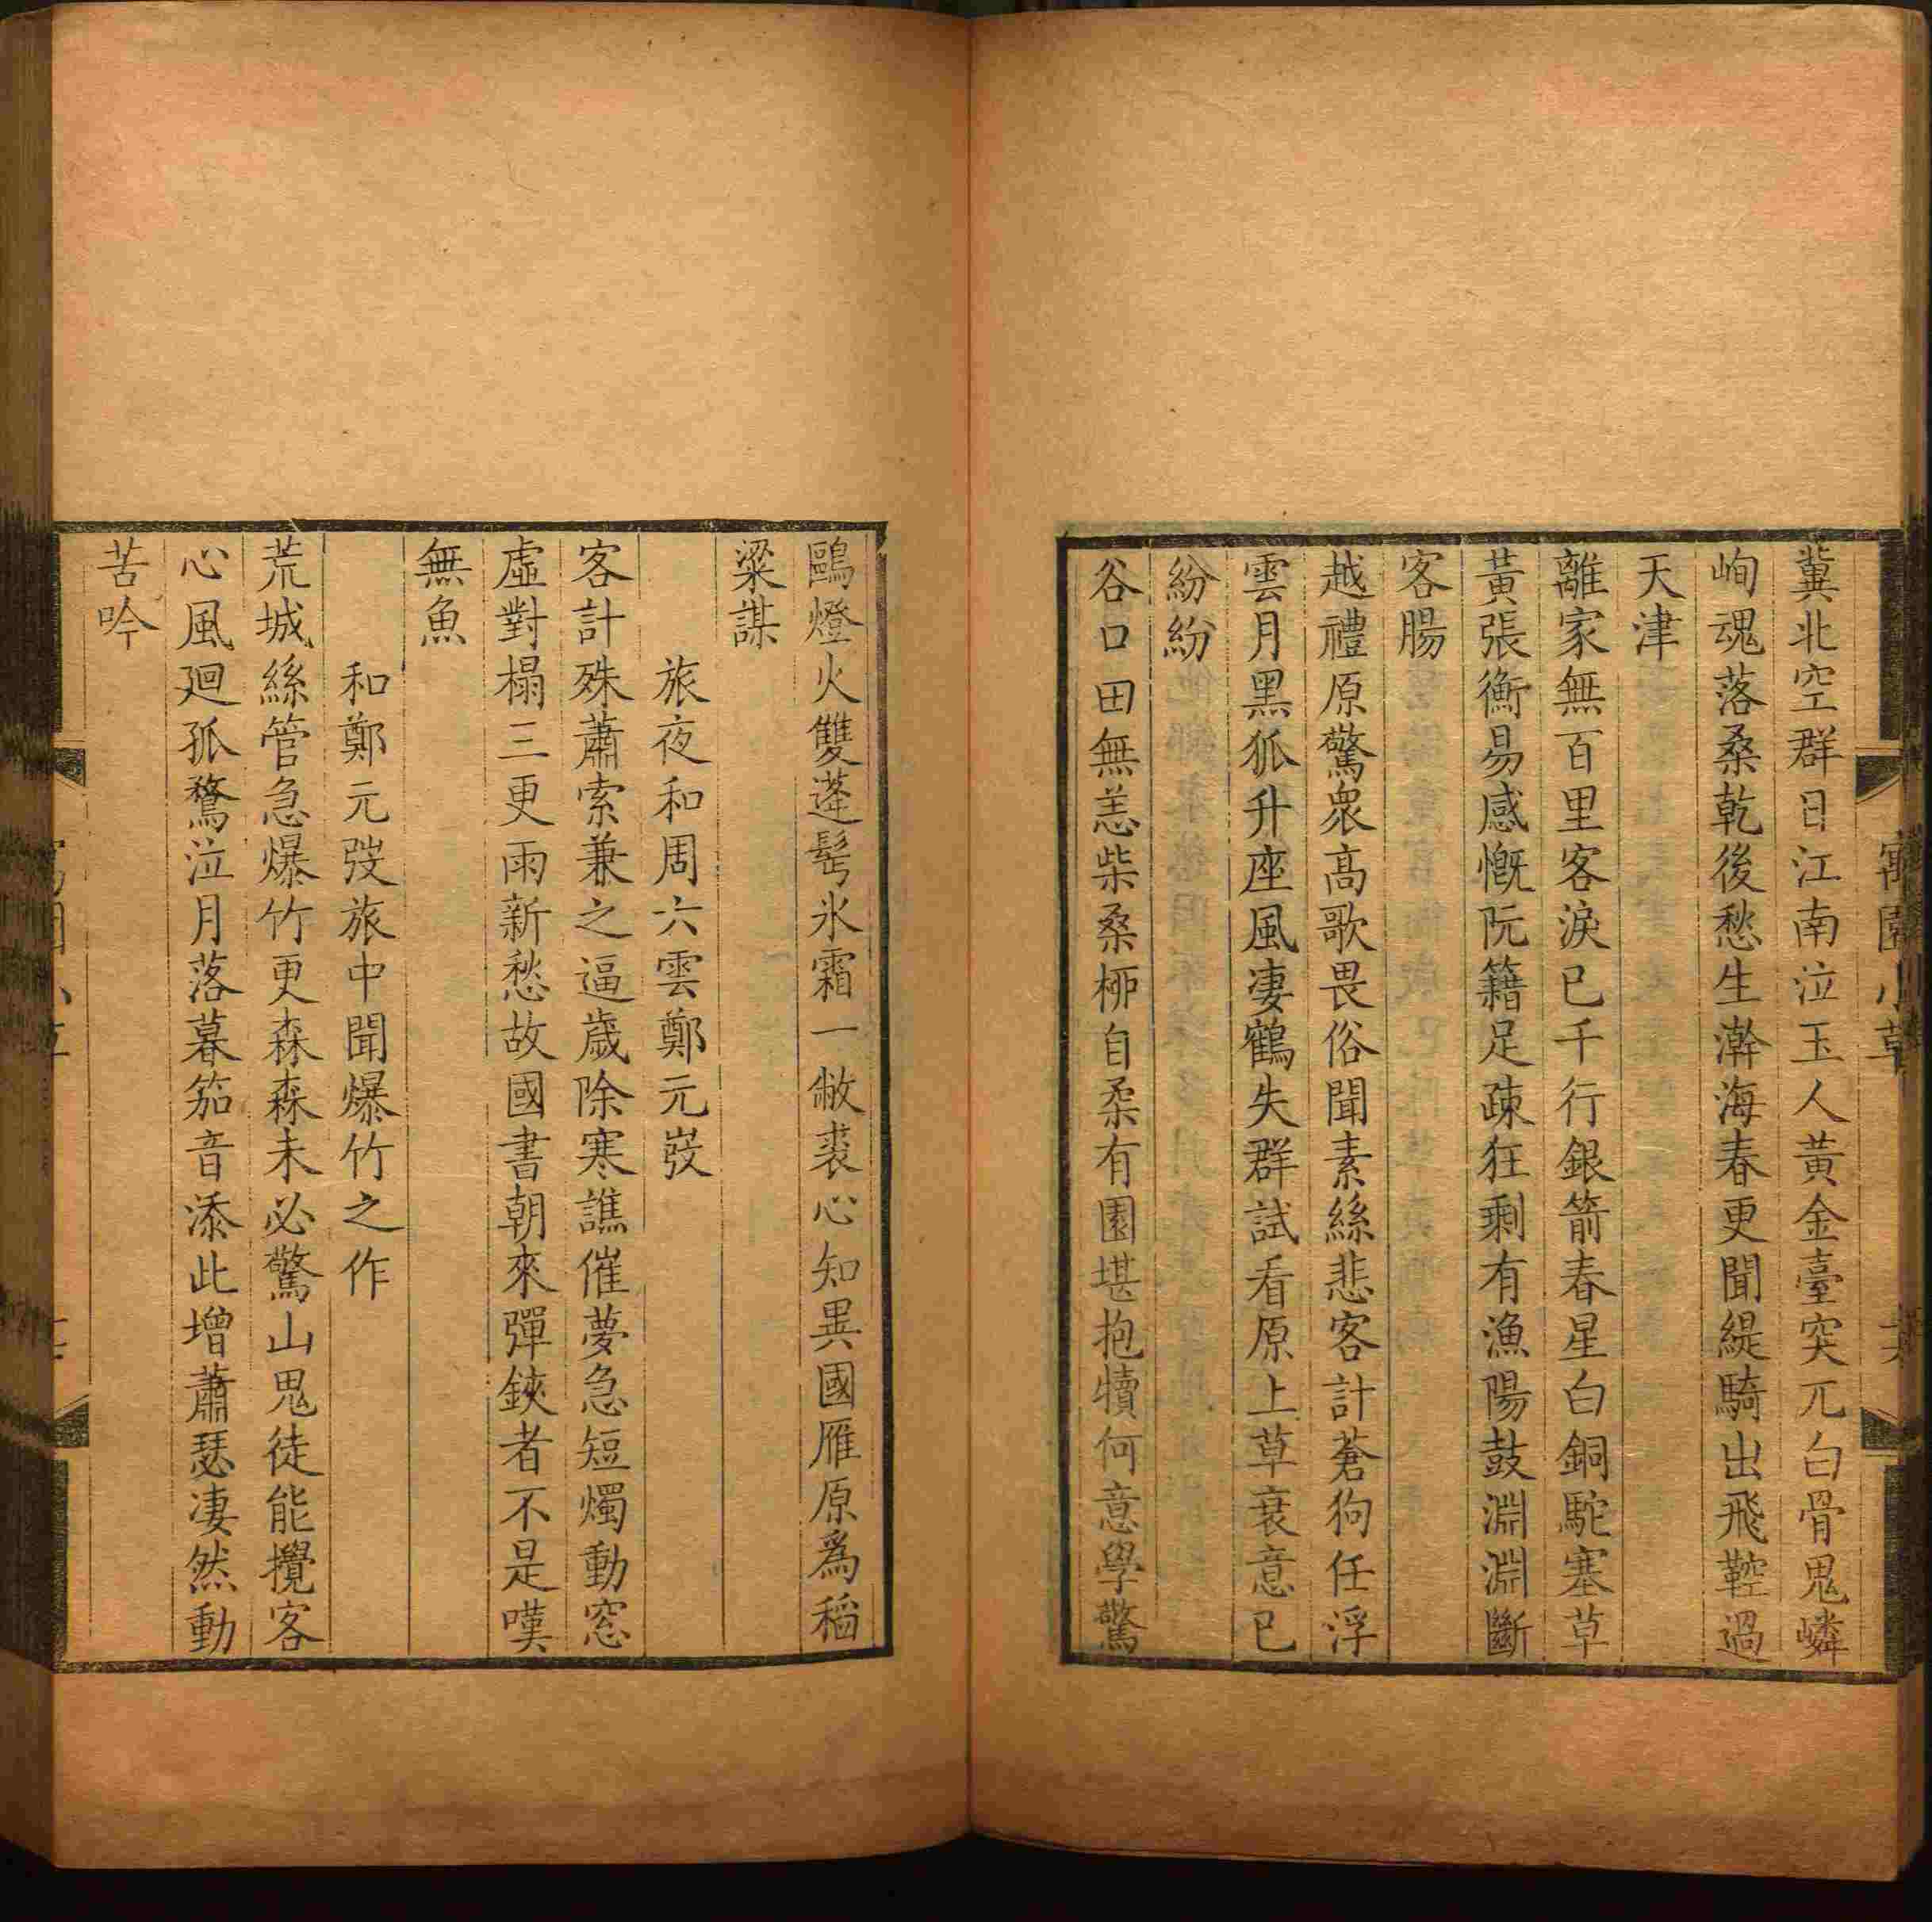 寓園小草
十六
冀北空群日江南泣玉人黃金臺突兀白骨鬼嶙
峋魂落桑乾後愁生瀚海春更聞緹騎出飛鞚過
天津
離家無百里客淚已千行銀箭春星白銅駝塞草
黃張衡易感慨阮籍足疎狂剩有漁陽鼓淵淵斷
客腸
越禮原驚眾高歌畏俗聞素絲悲客計蒼狗任浮
雲月黑狐升座風凄鶴失群試看原上草衰意已
紛紛
谷口田無恙柴桑桺自柔有園堪抱犢何意學驚
鷗燈火雙蓬髩氷霜一敝裘心知異國雁原爲稻
粱謀
旅夜和周六雲鄭元
客計殊蕭索兼之逼歲除寒譙催夢急短燭動窓
虛對榻三更雨新愁故國書朝來彈鋏者不是嘆
無魚
和鄭元旅中聞爆竹之作
荒城絲管急爆竹更森森未必驚山鬼徒能攪客
心風廻孤鶩泣月落暮笳音添此增蕭瑟凄然動
苦吟